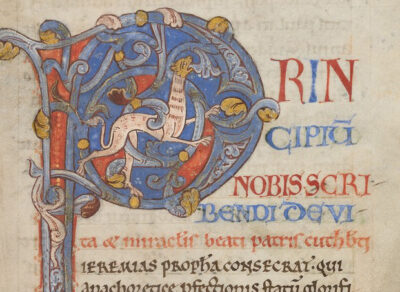 PRIN
CIPIŪ
NOBIS SCRI
BENDI DE VI
ta & miraclis beati patris cuthbti
IEREMIAS PROPHA CONSECRAT. QUI
anachoretice pfectionis statū gloifi